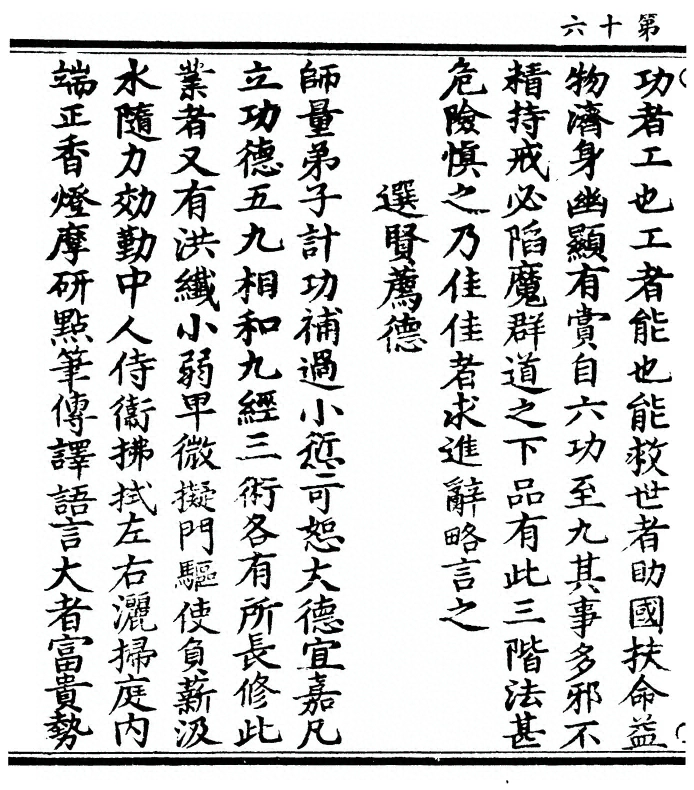 第十六
功者工也工者能也能救世者助國扶命益
物濟身幽顯有賞自六功至九其事多邪不
精持戒必陷魔群道之下品有此三階法甚
危險慎之乃佳佳者求進辭略言之
選賢薦德
師量弟子計功補過小愆可恕大德宜嘉凡
立功德五九相和九經三術各有所長修此
業者又有洪纖小弱卑微擬門驅使負薪汲
水隨力効勤中人侍衞拂拭左右灑掃庭內
端正香燈摩研點筆傳譯語言大者富貴勢